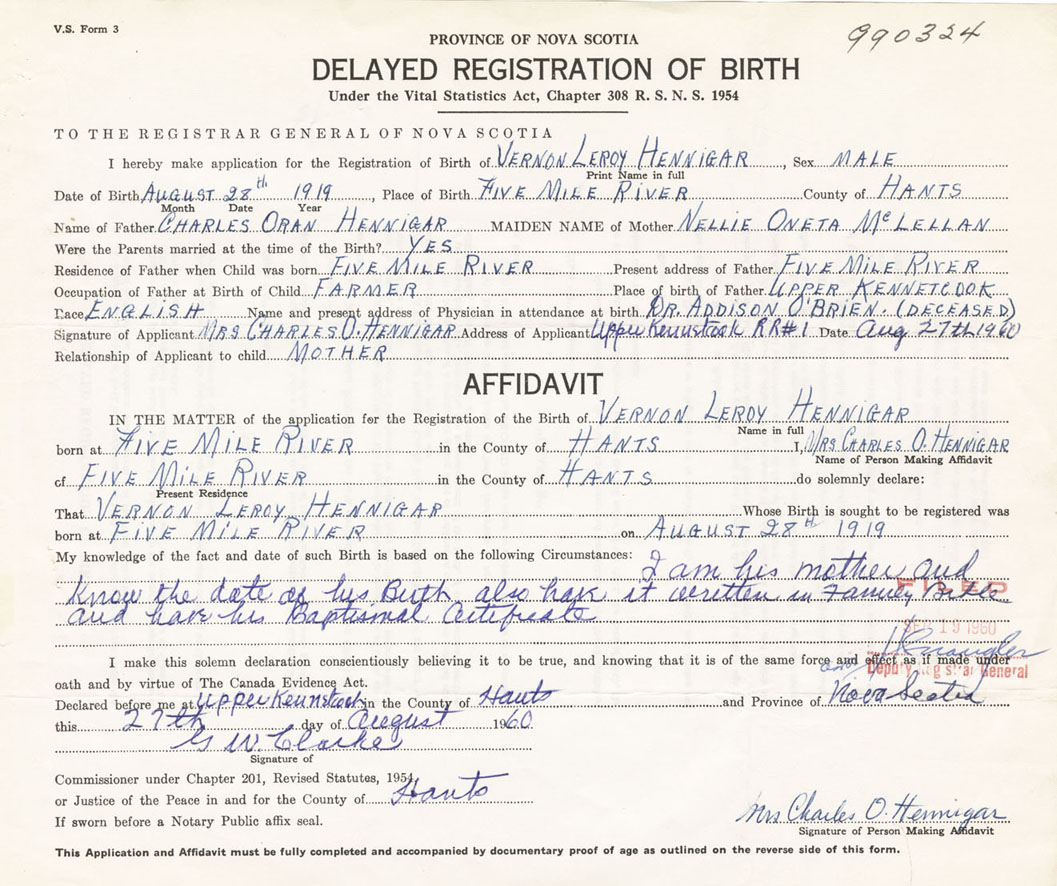 V.S. Form 3
990324
PROVINCE OF NOVA SCOTIA
DELAYED REGISTRATION OF BIRTH
Under the Vital Statistics Act, Chapter 308 R. S. N. S. 1954
TO THE REGISTRAR GENERAL OF NOVA SCOTIA
I hereby make application for the Registration of Birth of VERNON LEROY HENNIGAR, Sex MALE
Print Name in full
Date of Birth AUGUST 28th 1919, Place of Birth FIVE MILE RIVER County of HANTS
Month Date Year
Name of Father CHARLES ORAN HENNIGAR MAIDEN NAME of Mother NELLIE ONETA McLELLAN
Were the Parents married at the time of the Birth? YES
Residence of Father when Child was born FIVE MILE RIVER Present address of Father FIVE MILE RIVER
Occupation of Father at Birth of Child FARMER Place of birth of Father UPPER KENNETCOOK
Race ENGLISH Name and present address of Physician in attendance at birth DR. ADDISON O'BRIEN. (DECEASED)
Signature of Applicant MRS CHARLES O. HENNIGAR Address of Applicant Upper Kennetcook RR#1 Date Aug 27th 1960
Relationship of Applicant to child MOTHER
AFFIDAVIT
IN THE MATTER of the application for the Registration of the Birth of VERNON LEROY HENNIGAR
Name in full
born at FIVE MILE RIVER in the County of HANTS I, MRS CHARLES O. HENNIGAR
Name of Person Making Affidavit
of FIVE MILE RIVER in the County of HANTS do solemnly declare:
Present Residence
That VERNON LEROY HENNIGAR Whose Birth is sought to be registered was
born at FIVE MILE RIVER on AUGUST 28th 1919
My knowledge of the fact and date of such Birth is based on the following Circumstances: I am his mother and
Know the date of his Birth also have it written in Family Bible
and have his Baptismal Certificate
FILED
SEP 19 1960
I make this solemn declaration conscientiously believing it to be true, and knowing that it is of the same force and effect as if made under
Deputy Registrar General
oath and by virtue of The Canada Evidence Act.
Declared before me at Upper Kennetcook in the County of Hants and Province of Nova Scotia
this 27th day of August 1960
G W. Clarke
Signature of
Commissioner under Chapter 201, Revised Statutes, 1954,
or Justice of the Peace in and for the County of Hants
If sworn before a Notary Public affix seal.
Mrs Charles O. Hennigar
Signature of Person Making Affidavit
This Application and Affidavit must be fully completed and accompanied by documentary proof of age as outlined on the reverse side of this form.